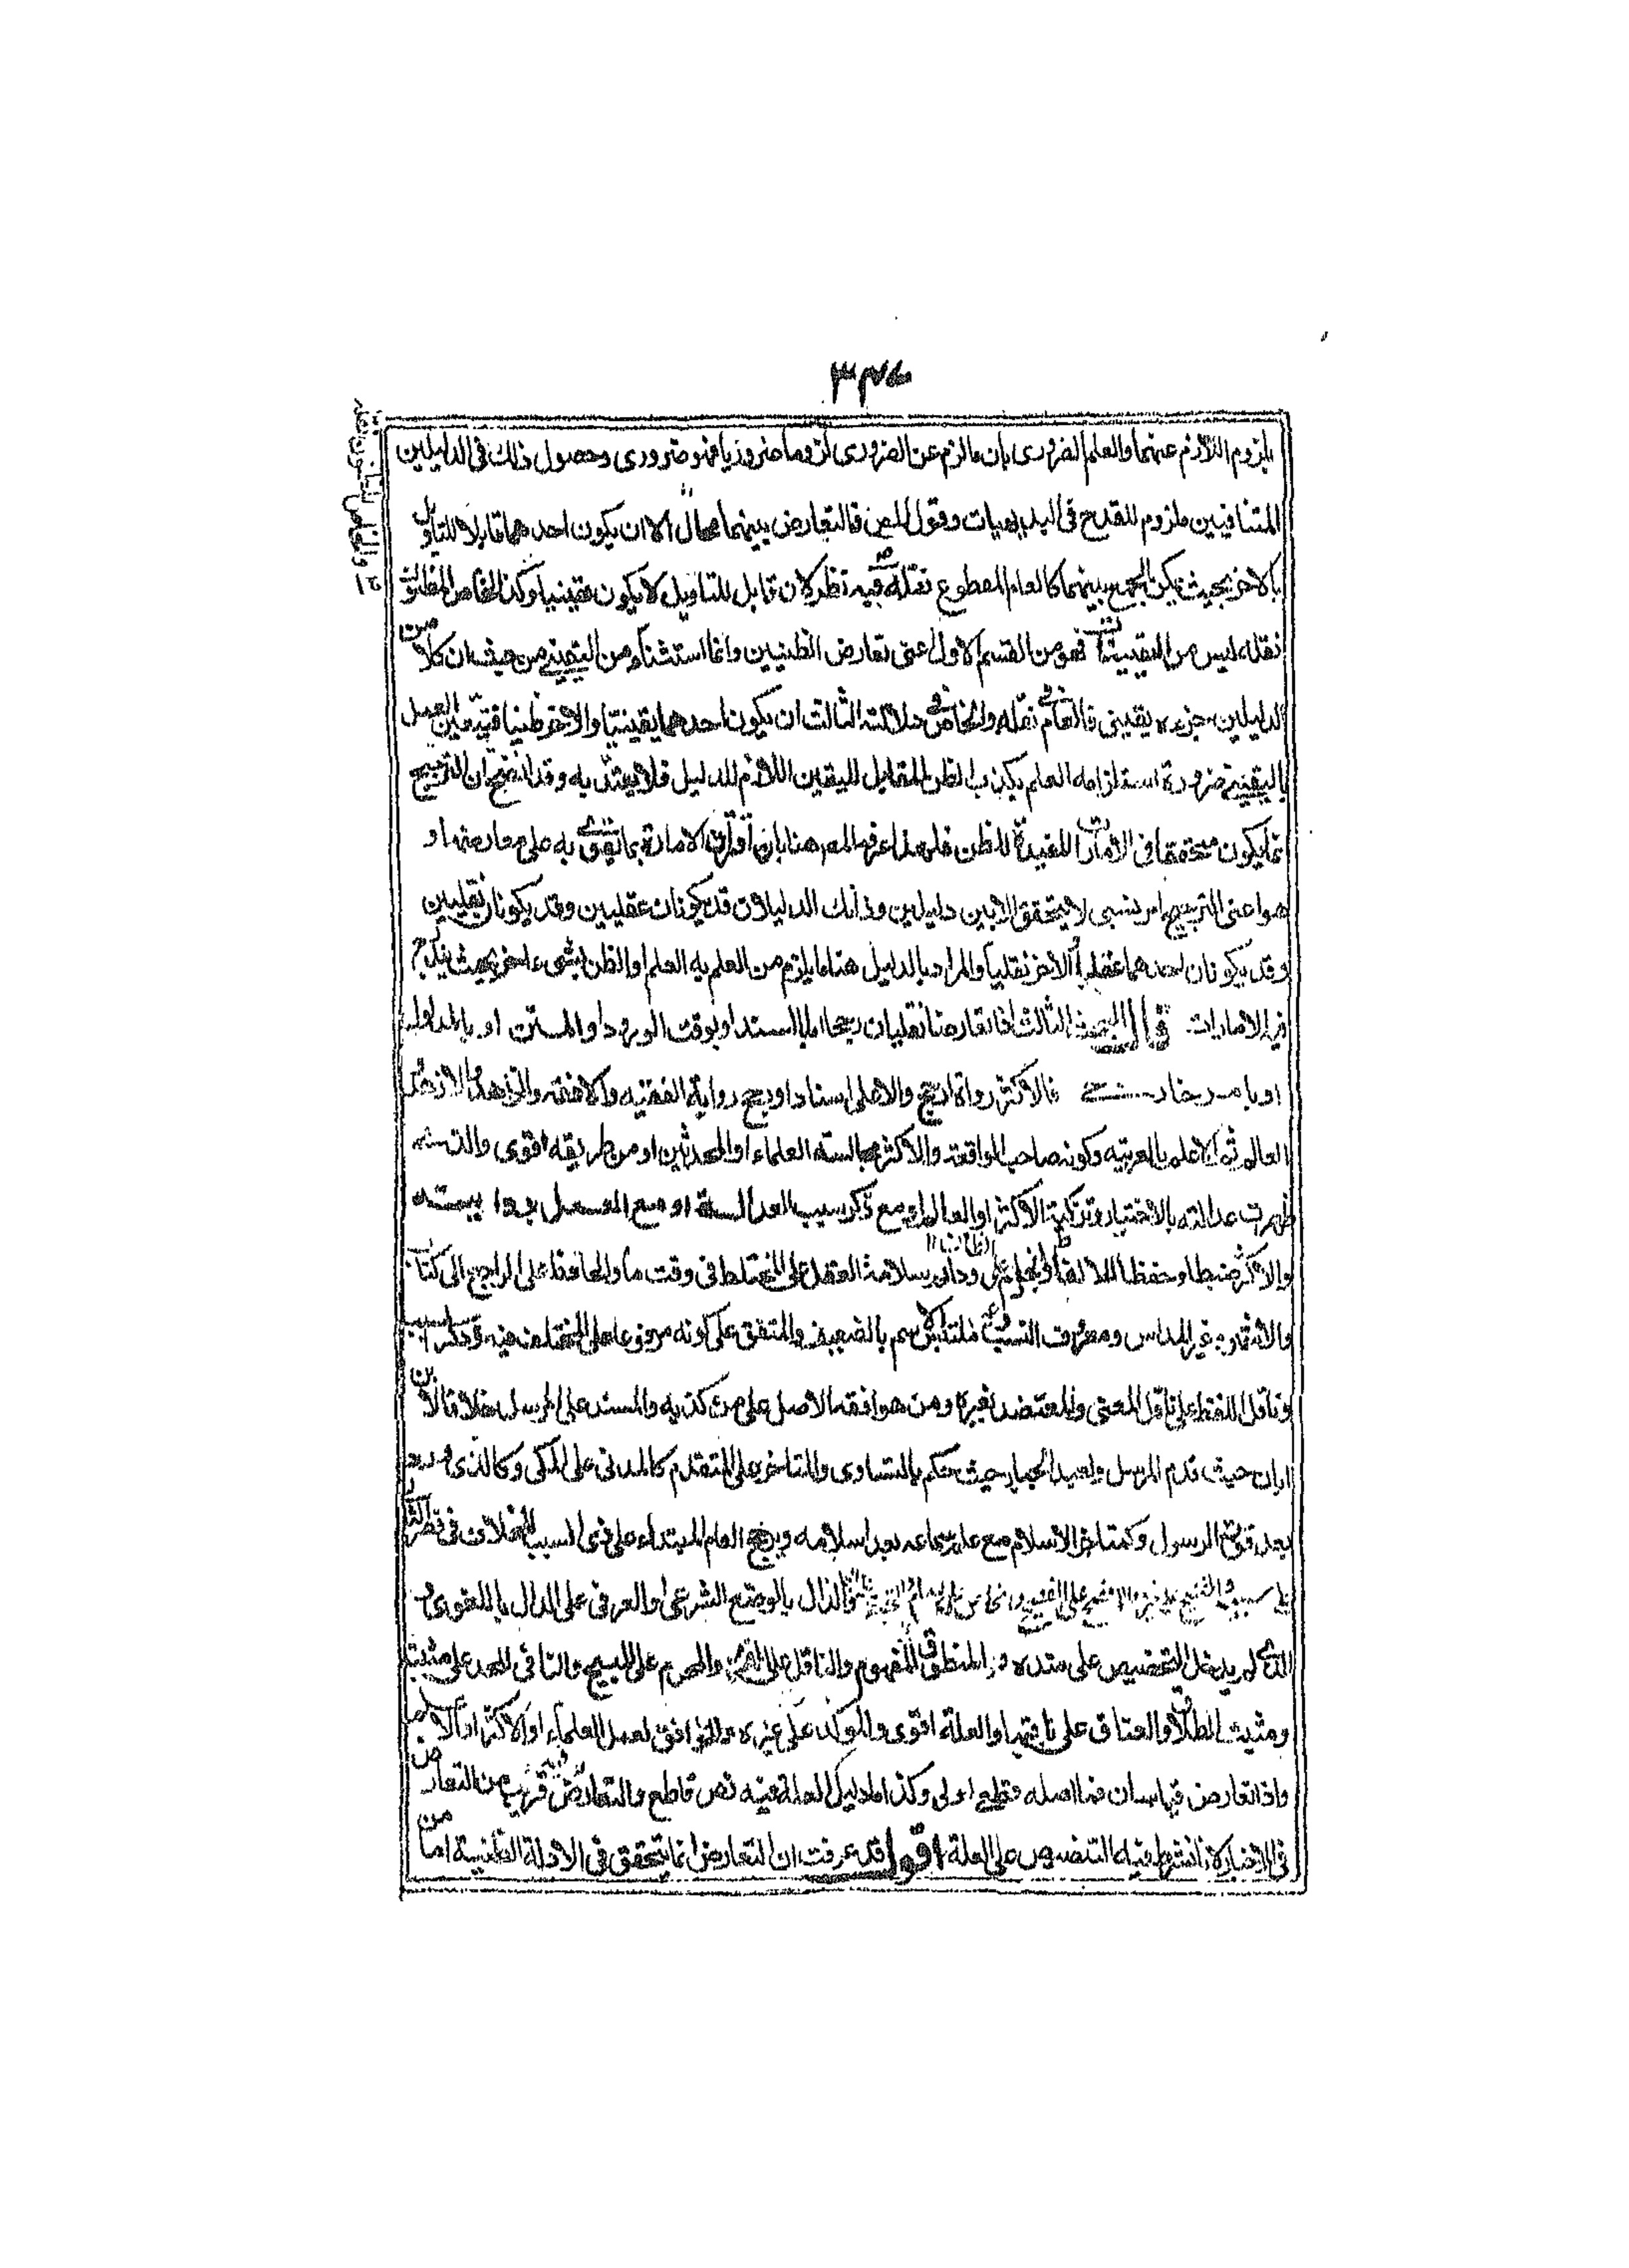 ٣٧٤
بلزوم اللازم عنهما والعلم الضروري بان ما لزم عن الضروري لزوما ضروريا فهو ضروري وحصول ذلك في الدليلين
المتنافيين ملزوم للقدح في البديهيات وقول المص فالتعارض بينهما محال الا ان يكون احدهما قابلا للتاويل
بالاخر بحيث يمكن الجمع بينهما كالعام المقطوع نقله فيه نظر لان قابل للتاويل لا يكون يقينيا وكذا الخاص المظنون
نقله ليس من اليقينيات فهو من القسم الاول اعنى تعارض الظنيين وانما استثناه من اليقيني من حيث ان كلا من
الدليلين جزءه يقيني فالعام في نقله والخاص في دلالته الثالث ان يكون احدهما يقينيا والاخر ظنيا فيتعين العمل
باليقيني ضرورة استلزامه العلم بكذب الظن المقابل لليقين اللازم للدليل فلا يعتد به وقد اتضح ان الترجيح
انما يكون متحققا في الامارات المفيدة للظن فلهذا عرفه المص هنا بانه اقتران الامارة بما تقوى به على معارضها و
هو اعنى الترجيح امر نسبي لا يتحقق الا بين دليلين وذانك الدليلان قد يكونان عقليين وقد يكونان نقليين
وقد يكونان احدهما عقليا والاخر نقليا والمراد بالدليل هنا ما يلزم من العلم به العلم او الظن بشيء اخر بحيث يندرج
فيه الامارات قال البحث الثالث اذا تعارضا نقليان رجحا اما بالسند او بوقت الورود او المتن او بالمدلول
او بامر خارج فالاكثر رواة ارجح والاعلى اسنادا ويرجح رواية الفقيه والافقه والزاهد والازهد
العالم ثم الاعلم بالعربية وكونه صاحب الواقعة والاكثر مجالسة العلماء او المحدثين او من طريقه اقوى والذي
ظهرت عدالته بالاختبار وتزكية الاكثر او العالم او مع ذكر سبب العدالة او مع العمل بروايته
والاكثر ضبطا وحفظا لالفاظ ودائم سلامة العقل على المختلط في وقت ما والحافظ على الراجع الى كتاب
والاشهر وغير المدلس ومعروف النسب وغير ملتبس الاسم بالضعيف والمتفق على كونه مرفوعا على المختلف فيه وذكر السبب
وناقل اللفظ على ناقل المعنى والمعتضد بغيره ومن هو افقه الاصل على من كذبه والمسند على المرسل خلافا لابن
ابان حيث قدم المرسل ولعبد الجبار حيث حكم بالتساوى والمتاخر على المتقدم كالمدنى على المكي وكالذى ورد
بعد قوة الرسول وكمتاخر الاسلام مع علم سماعه بعد اسلامه ويرجح العام المبتداء على ذى السبب للخلاف في قصر الثاني
على سببه والفصيح على غيره لا الافصح على الفصيح والخاص على العام والحقيقة والدال بالوضع الشرعى والعرفى على الدال باللغوى و
الذي لم يدخل التخصيص على ضده والمنطوق على المفهوم والناقل على المقرر والمحرم على المبيح والنافى للحد على مثبته
ومثبت الطلاق والعتاق على نافيهما والعلة اقوى والمؤكد على غيره والموافق لعمل العلماء او الاكثر او الاعلم
واذا تعارض قياسان فما اصله قطعي اولى وكذا ما دليل العلة فيه نص قاطع والتعارض فيه قريب من التعارض
في الاخبار لانا نشترط فيه التنصيص على العلة اقول قد عرفت ان التعارض انما يتحقق في الادلة الظنية اما من